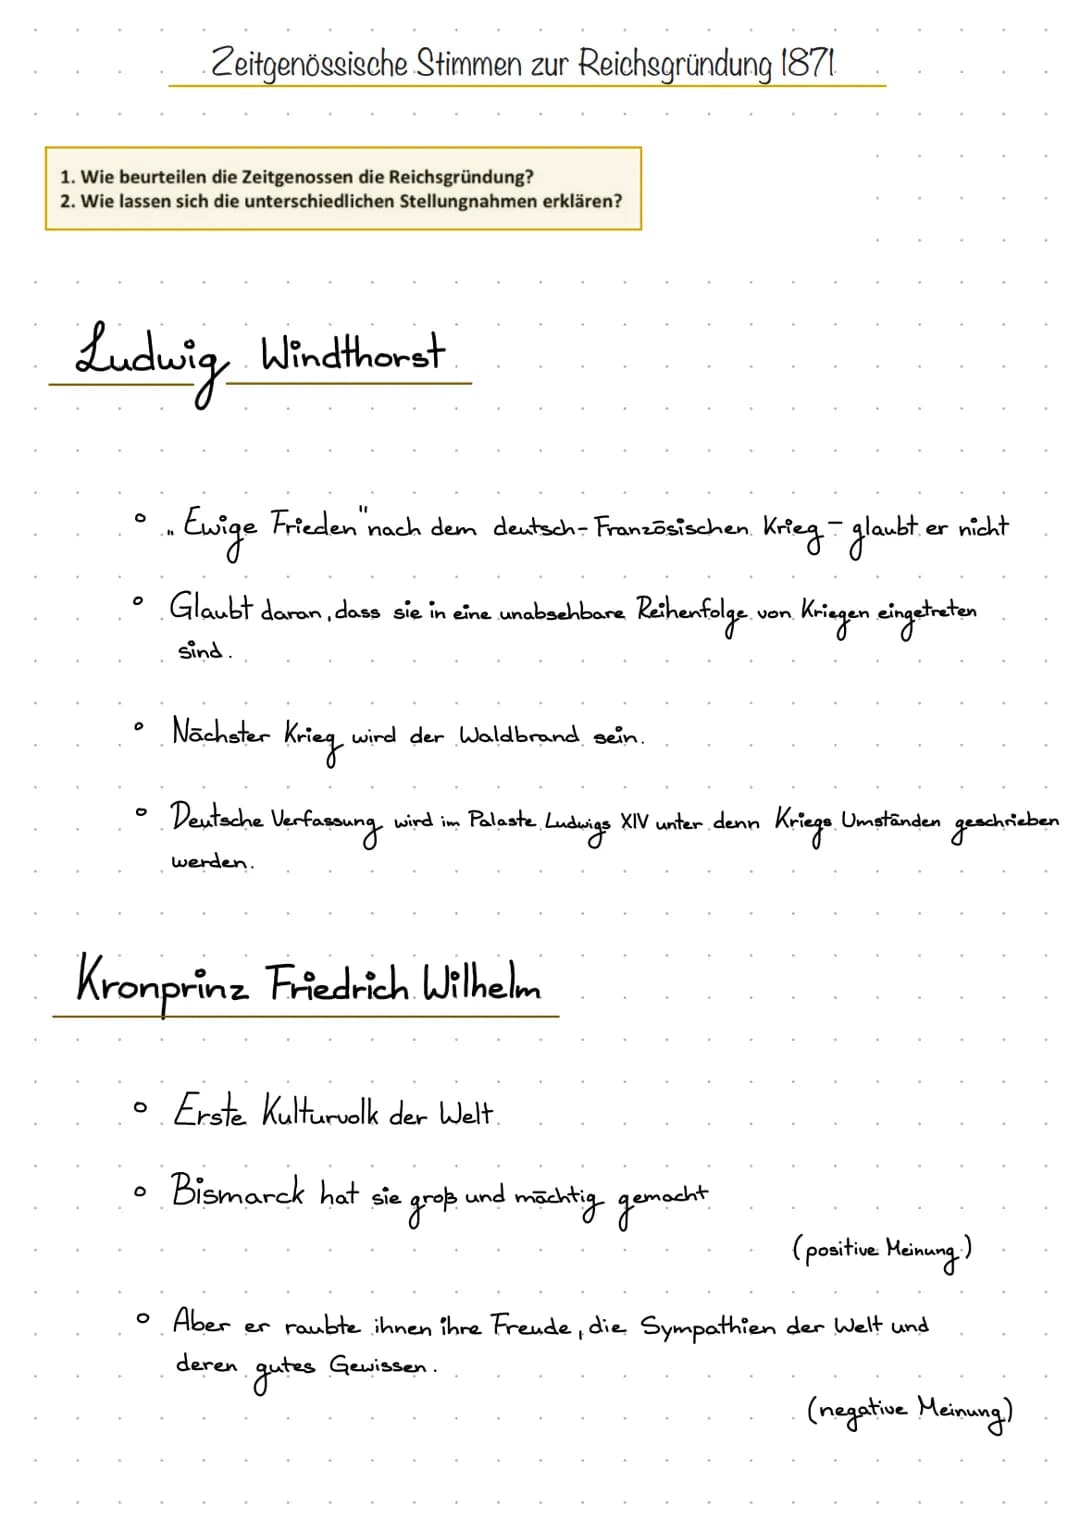 Zeitgenössische Stimmen zur Reichsgründung 1871
1. Wie beurteilen die Zeitgenossen die Reichsgründung?
2. Wie lassen sich die unterschiedlichen Stellungnahmen erklären?
Ludwig Windthorst
° „Ewige Frieden" nach dem deutsch-Französischen Krieg - glaubt er nicht
° Glaubt daran, dass sie in eine unabsehbare Reihenfolge von Kriegen eingetreten
sind.
° Nächster Krieg wird der Waldbrand sein.
° Deutsche Verfassung wird im Palaste Ludwigs XIV unter denn Kriegs Umständen geschrieben
werden.
Kronprinz Friedrich Wilhelm
° Erste Kulturvolk der Welt
° Bismarck hat sie groß und mächtig gemacht
(positive Meinung)
° Aber er raubte ihnen ihre Freude, die Sympathien der Welt und
deren gutes Gewissen.
(negative Meinung)